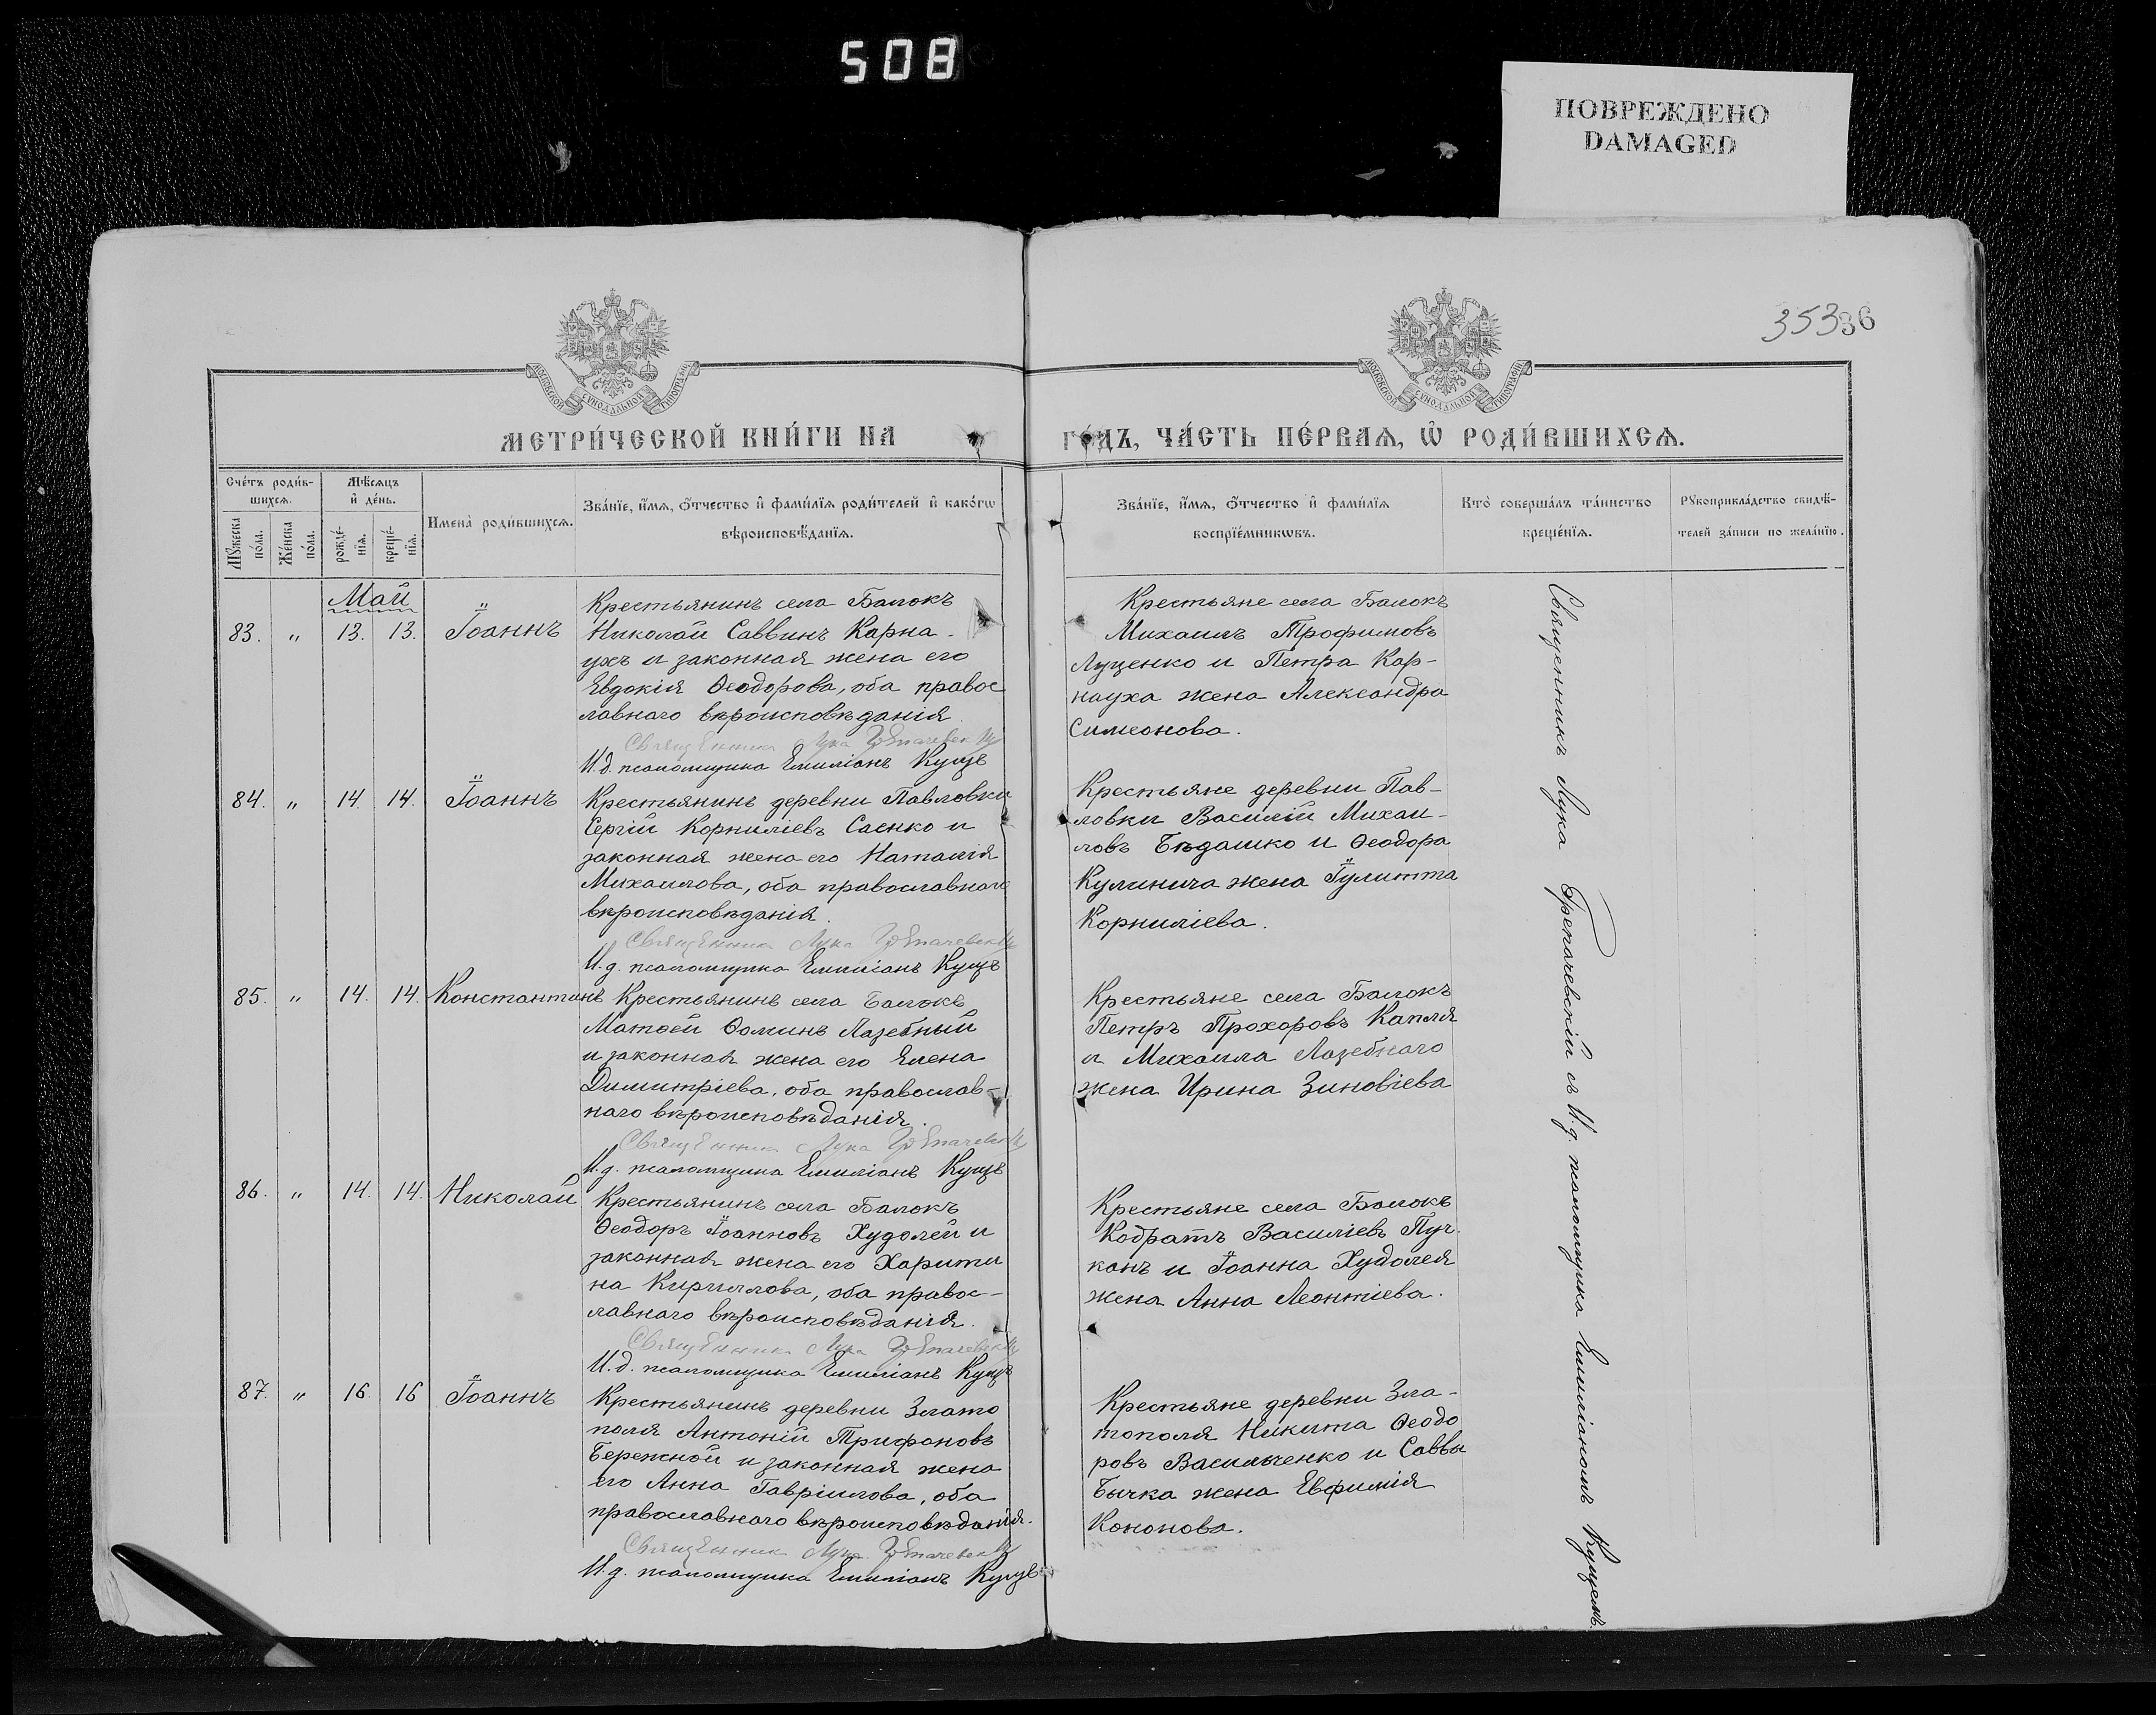 508
ПОВРЕЖДЕНО
DAMAGED
35336
МОСКОВСКОЙ СѴНОДАЛЬНОЙ ТИПОГРАФІИ
МОСКОВСКОЙ СѴНОДАЛЬНОЙ ТИПОГРАФІИ
МЕТРИ́ЧЕСКОЙ КНИ́ГИ НА
ГО́ДЪ, ЧА́СТЬ ПЕ́РВАѦ, Ѡ҆ РОДИ́ВШИХСѦ.
Сче́тъ роди́в-
шихсѧ.
Мꙋ́жеска
по́ла.
Же́нска
по́ла.
Мѣ́сѧцъ
и҆ де́нь.
рожде́-
нїѧ.
креще́-
нїѧ.
Имена̀ роди́вшихсѧ.
Зва́нїе, и҆́мѧ, ѻ҆́тчество и҆ фами́лїѧ роди́телей и҆ како́гѡ
вѣроисповѣ́данїѧ.
Зва́нїе, и҆́мѧ, ѻ҆́тчество и҆ фами́лїѧ
воспрїе́мникѡвъ.
Кто̀ соверша́лъ та́инство
креще́нїѧ.
Рꙋкоприкла́дство свидѣ́-
телей за́писи по жела́нїю.
Май
83. „ 13. 13. Іоаннъ
Крестьянинъ села Балокъ
Николай Саввинъ Карна-
ухъ и законная жена его
Евдокія Ѳеодорова, оба правос
лавнаго вѣроисповѣданія.
Священникъ Лука Грепачевскій
И.д. псаломщика Емиліанъ Кущъ
Крестьяне села Балокъ
Михаилъ Трофимовъ
Луценко и Петра Кар-
науха жена Александра
Симеонова.
84. „ 14. 14. Іоаннъ
Крестьянинъ деревни Павловки
Сергій Корниліевъ Саенко и
законная жена его Наталія
Михаилова, оба православнаго
вѣроисповѣданія.
Священникъ Лука Грепачевскій
И.д. псаломщика Емиліанъ Кущъ
Крестьяне деревни Пав-
ловки Василій Михаи-
ловъ Бѣдашко и Ѳеодора
Кулинича жена Іулитта
Корниліева.
85. „ 14. 14. Константинъ
Крестьянинъ села Балокъ
Матѳей Ѳоминъ Лазебный
и законная жена его Елена
Димитріева, оба православ-
наго вѣроисповѣданія.
Священникъ Лука Грепачевскій
И.д. псаломщика Емиліанъ Кущъ
Крестьяне села Балокъ
Петръ Прохоровъ Капля
и Михаила Лазебнаго
жена Ирина Зиновіева
86. „ 14. 14. Николай
Крестьянинъ села Балокъ
Ѳеодоръ Іоанновъ Худолей и
законная жена его Харити
на Кириллова, оба правос-
лавнаго вѣроисповѣданія.
Священникъ Лука Грепачевскій
И.д. псаломщика Емиліанъ Кущъ
Крестьяне села Балокъ
Кодратъ Василіевъ Пуч
канъ и Іоанна Худолея
жена Анна Леонтіева.
87. „ 16. 16 Іоаннъ
Крестьянинъ деревни Злато
поля Антоній Трифоновъ
Бережной и законная жена
его Анна Гавріилова, оба
православнаго вѣроисповѣданія.
Священникъ Лука Грепачевскій
И.д. псаломщика Емиліанъ Кущъ
Крестьяне деревни Зла-
тополя Никита Ѳеодо
ровъ Васильченко и Саввы
Бычка жена Евфимія
Кононова.
Священникъ Лука Грепачевскій съ И.д. псаломщика Емиліаномъ Кущемъ.